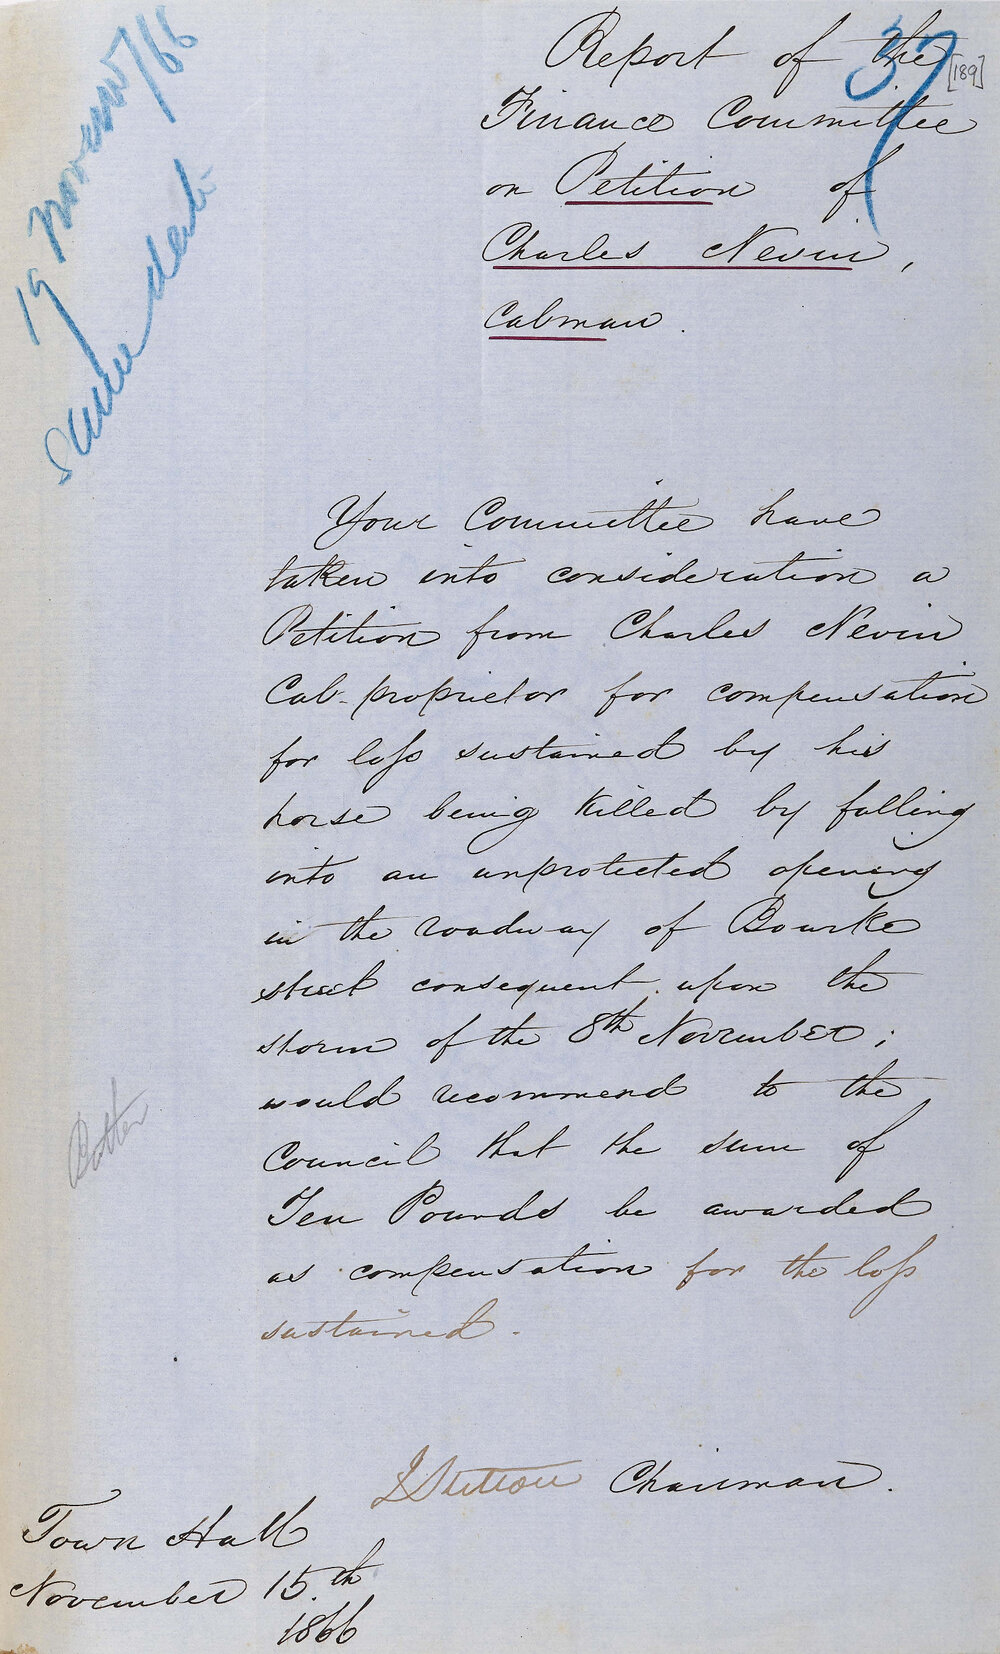 19 November/66
same date
37
[189]
Report of the
Finance Committee
on Petition of
Charles Nevin,
Cabman.
Your Committee have
taken into consideration a
Petition from Charles Nevin
Cab-proprietor for compensation
for loss sustained by his
horse being killed by falling
into an unprotected opening
in the roadway of Bourke
street consequent upon the
storm of the 8th November;
would recommend to the
Council that the sum of
Ten Pounds be awarded
as compensation for the loss
sustained.
Chairman.
Town Hall
November 15.th
1866